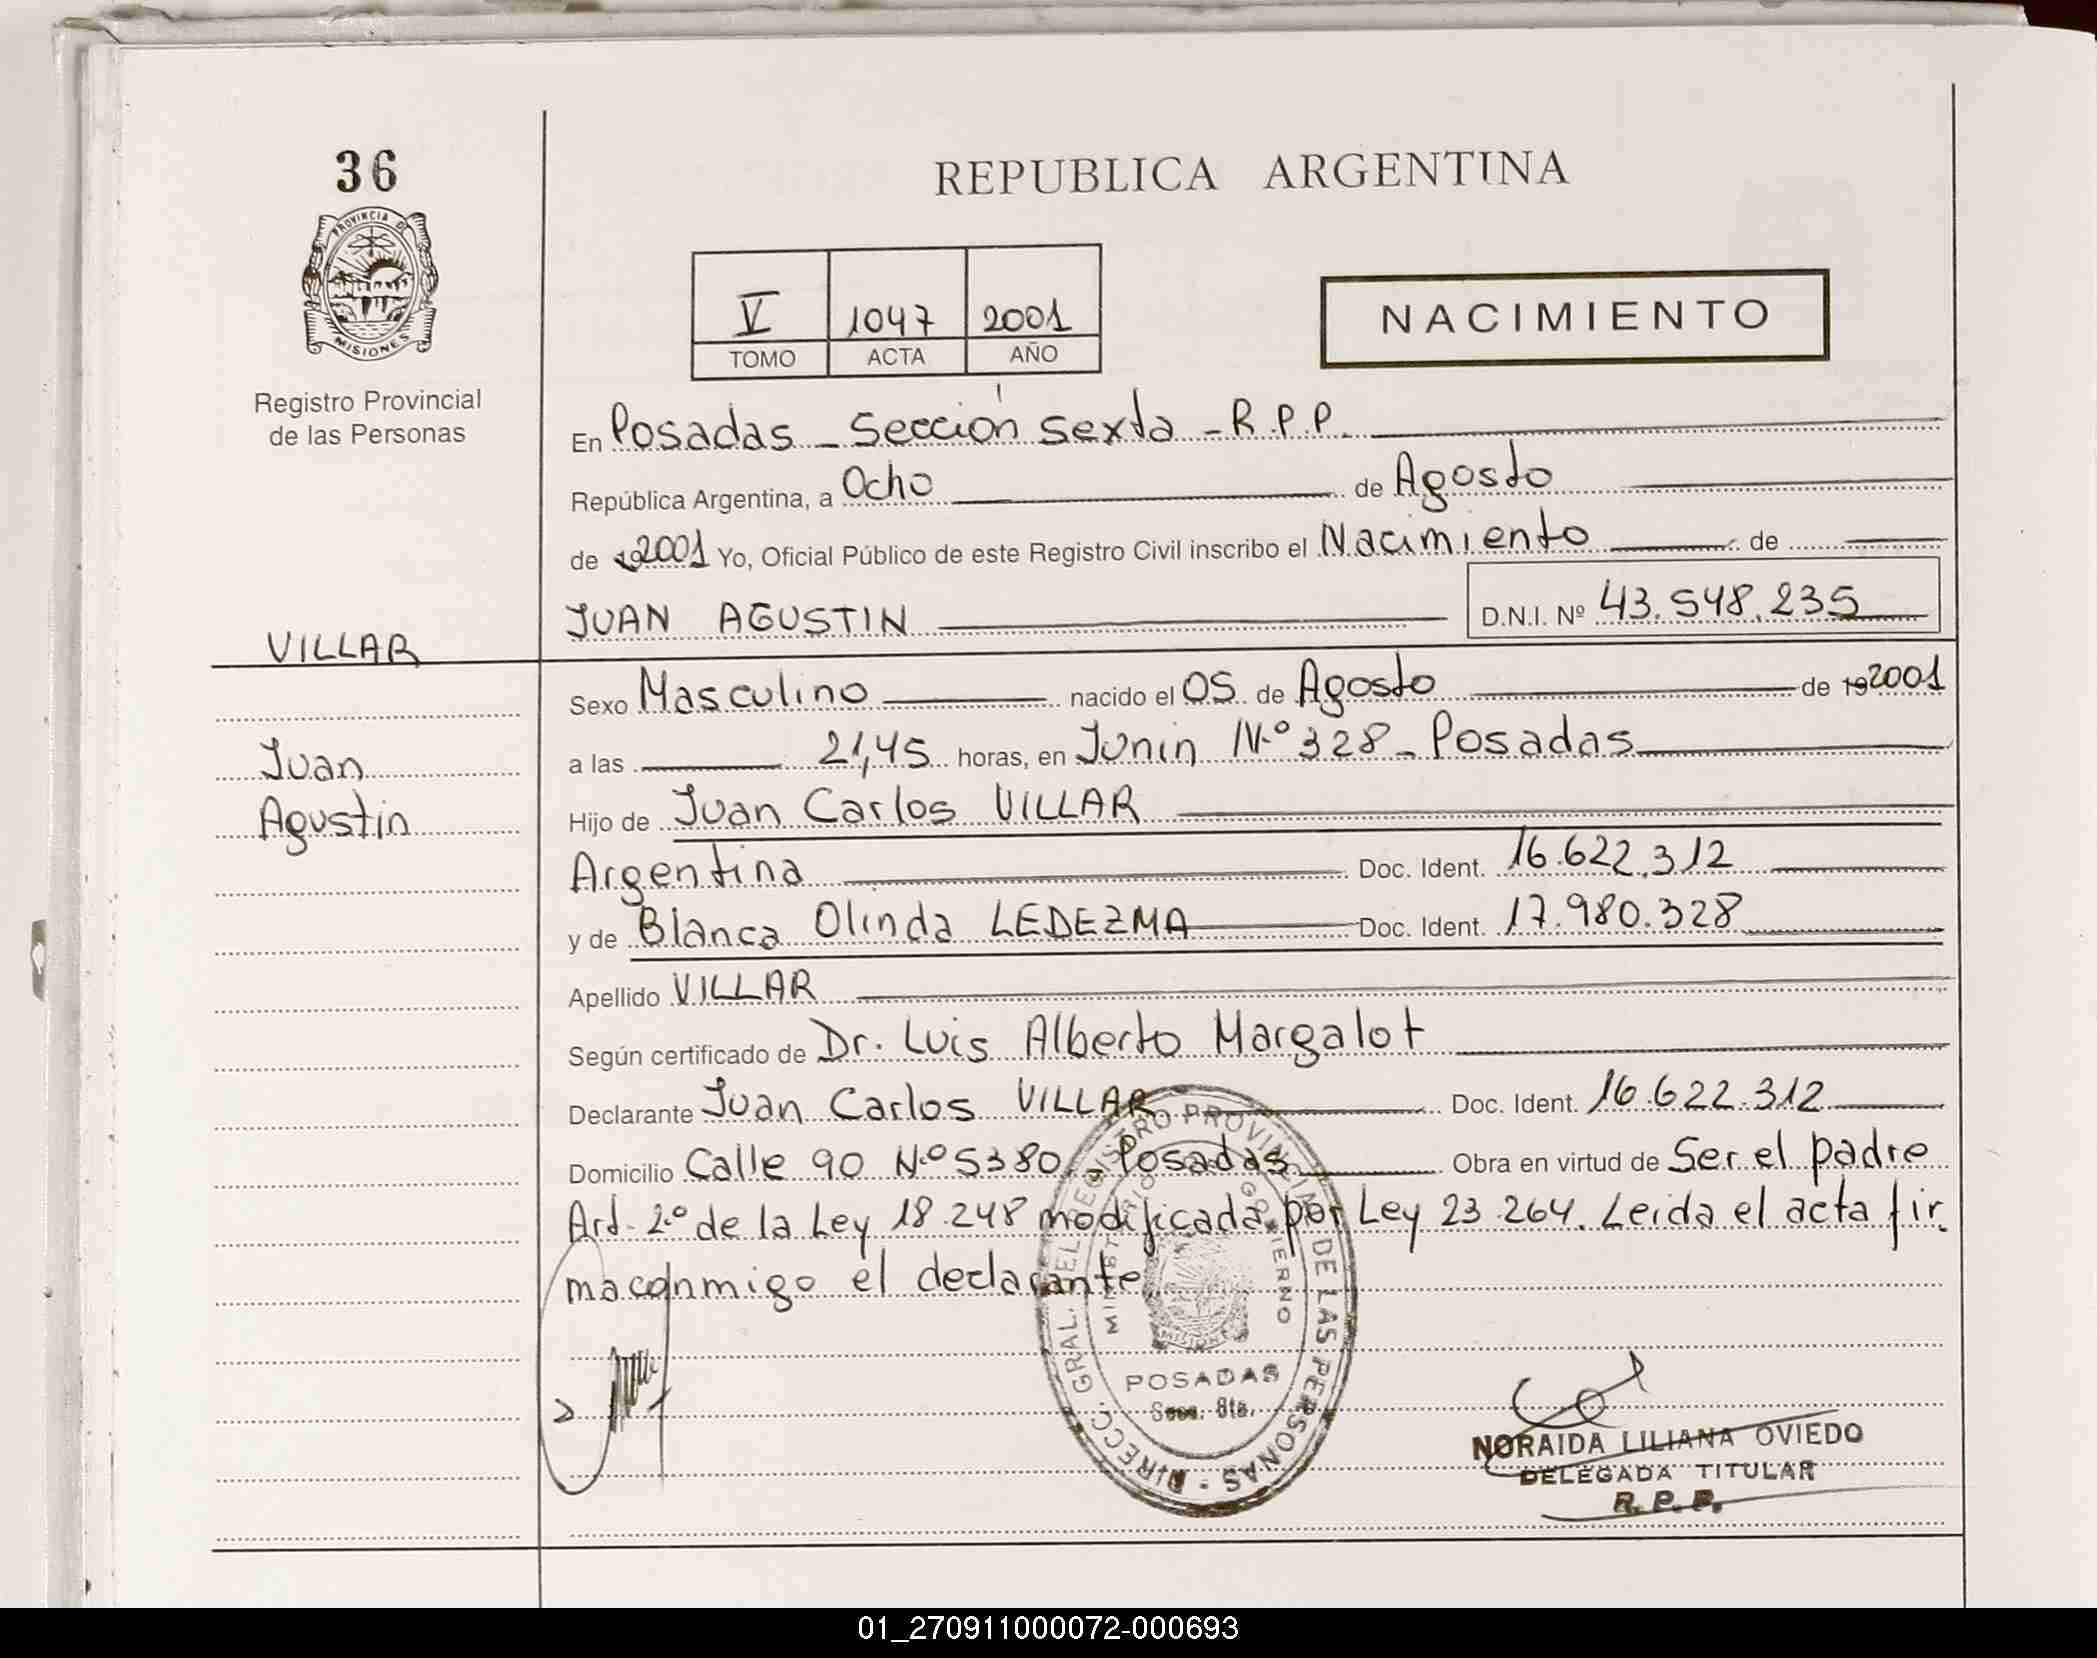 36
PROVINCIA DE
MISIONES
Registro Provincial
de las Personas
REPUBLICA ARGENTINA
V 1047 2001
TOMO ACTA AÑO
NACIMIENTO
En Posadas - Sección Sexta - R.P.P.
República Argentina, a Ocho de Agosto
de 192001 Yo, Oficial Público de este Registro Civil inscribo el Nacimiento de
JUAN AGUSTIN D.N.I. Nº 43.548.235
VILLAR
Sexo Masculino nacido el 05 de Agosto de 192001
Juan
a las 21,45 horas, en Junin N.º 328 - Posadas
Agustin
Hijo de Juan Carlos VILLAR
Argentina Doc. Ident. 16.622.312
y de Blanca Olinda LEDEZMA Doc. Ident. 17.980.328
Apellido VILLAR
Según certificado de Dr. Luis Alberto Margalot
Declarante Juan Carlos VILLAR Doc. Ident. 16.622.312
Domicilio Calle 90 N.º 5380 - Posadas Obra en virtud de Ser el padre
Art. 2.º de la Ley 18.248 modificada por Ley 23.264. Leida el acta fir.
ma conmigo el declarante
DIRECC. GRAL. DEL REGISTRO PROVINCIAL DE LAS PERSONAS
MINISTERIO DE GOBIERNO
MISIONES
POSADAS
Secc. 6ta.
NORAIDA LILIANA OVIEDO
DELEGADA TITULAR
R. P. P.
01_270911000072-000693